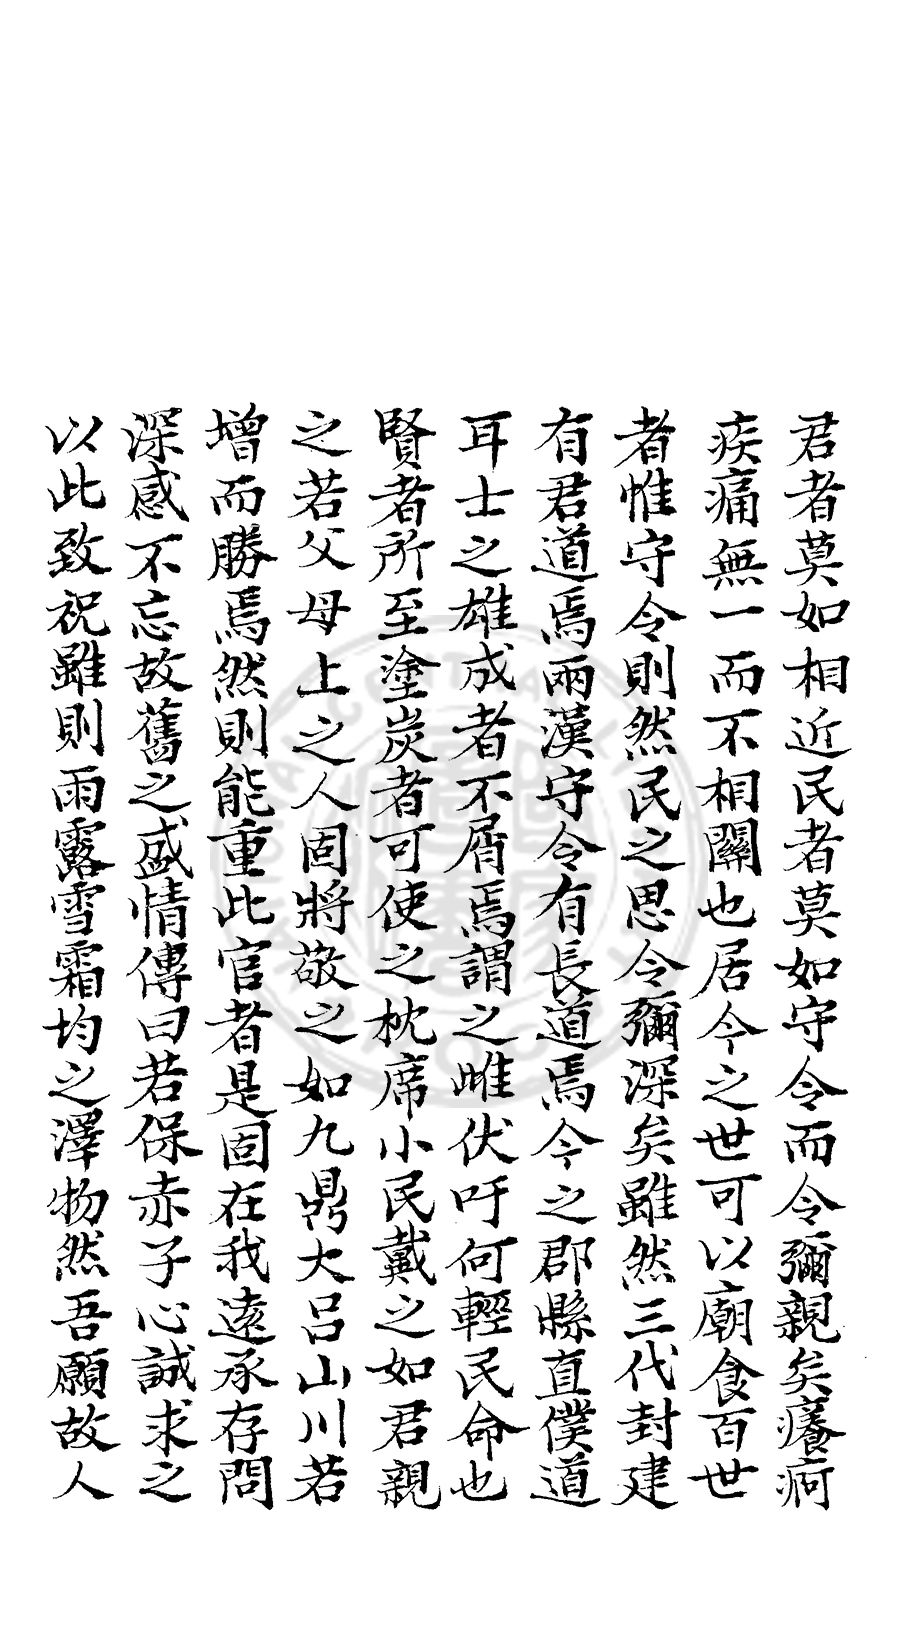 君者莫如相近民者莫如守令而令彌親矣癢疴
疾痛無一而不相關也居今之世可以廟食百世
者惟守令則然民之思令彌深矣雖然三代封建
有君道焉兩漢守令有長道焉今之郡縣直僕道
耳士之雄成者不屑焉謂之雌伏吁何輕民命也
賢者所至塗炭者可使之枕席小民戴之如君親
之若父母上之人固將敬之如九鼎大呂山川若
增而勝焉然則能重此官者是固在我遠承存問
深感不忘故舊之盛情傳曰若保赤子心誠求之
以此致祝雖則雨露雪霜均之澤物然吾願故人